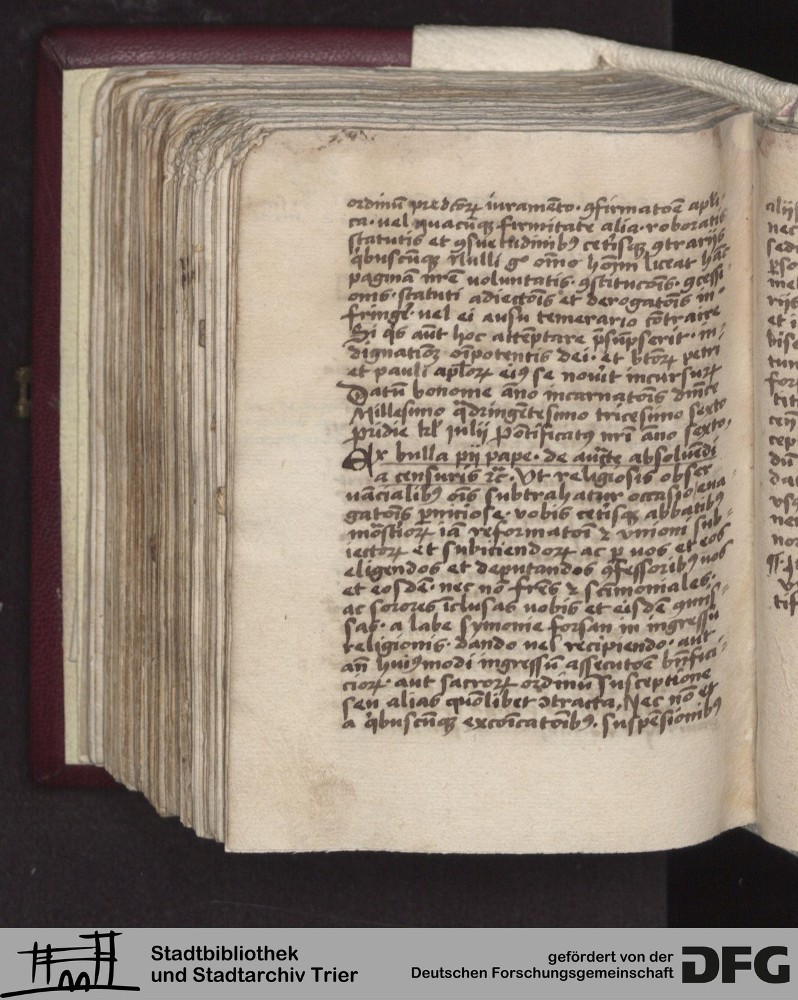 ordinū predcōꝝ iuramēto · ꝯfirmatōe apli-
ca · uel quacūqꝫ firmitate alia · roboratis
statutis et ꝯsuetudinibꝰ ceīsqꝫ ꝯtrarijs
qͥbuscūqꝫ Nulli gͦ oīno hoīm liceat hāc
paginā nrē voluntatis · ꝯstitucōis · ꝯcessi
onis · statuti adiectōis et derogatōis in-
fringē · uel ei ausu temerario cōtraire
Si qͥs aūt hoc attēptare p̄sūpserit · in-
dignatiōꝫ oīpotentis dei · et btōꝝ petri
et pauli aplōꝝ eiꝰ se nouīt incursuꝝ
Datū bononie āno incarnatōis dnīce
Millesimo qͣdringētesimo tricesimo sexto
pridie kl̄ Iulij pōtificatꝰ nrī āno sexto,
Ex bulla pij pape · de aucte absoluēdi
a censuris ꝛc̄ · Vt religiosis obser
uācialibꝰ oīs subtrahatur occasio eua
gatōis ꝑniciose · vobis ceīsqꝫ abbatibꝰ
mōstioꝝ iā reformatōi ⁊ vnioni sub-
iectoꝝ et subiciendoꝝ ac ꝑ vos et eos
eligendos et deputandos ꝯfessoribꝰ uos
et eosdē · nec nō frēs ⁊ sctīmoniales ·
ac sorores īclusas uobis et eisdē qͣmis-
sas · a labe symonie forsan in ingressu
religionis · dando uel recipiendo · aut
an̄ huiꝰmodi ingressū assecutōe bn̄fici-
cioꝝ · aut sacroꝝ ordinū susceptione
seu alias quōlibet ꝯtracta, Nec nō et
a qͥbuscūqꝫ excoīcatōibꝰ · suspēsionibꝰ
Stadtbibliothek
und Stadtarchiv Trier
gefördert von der
Deutschen Forschungsgemeinschaft
DFG